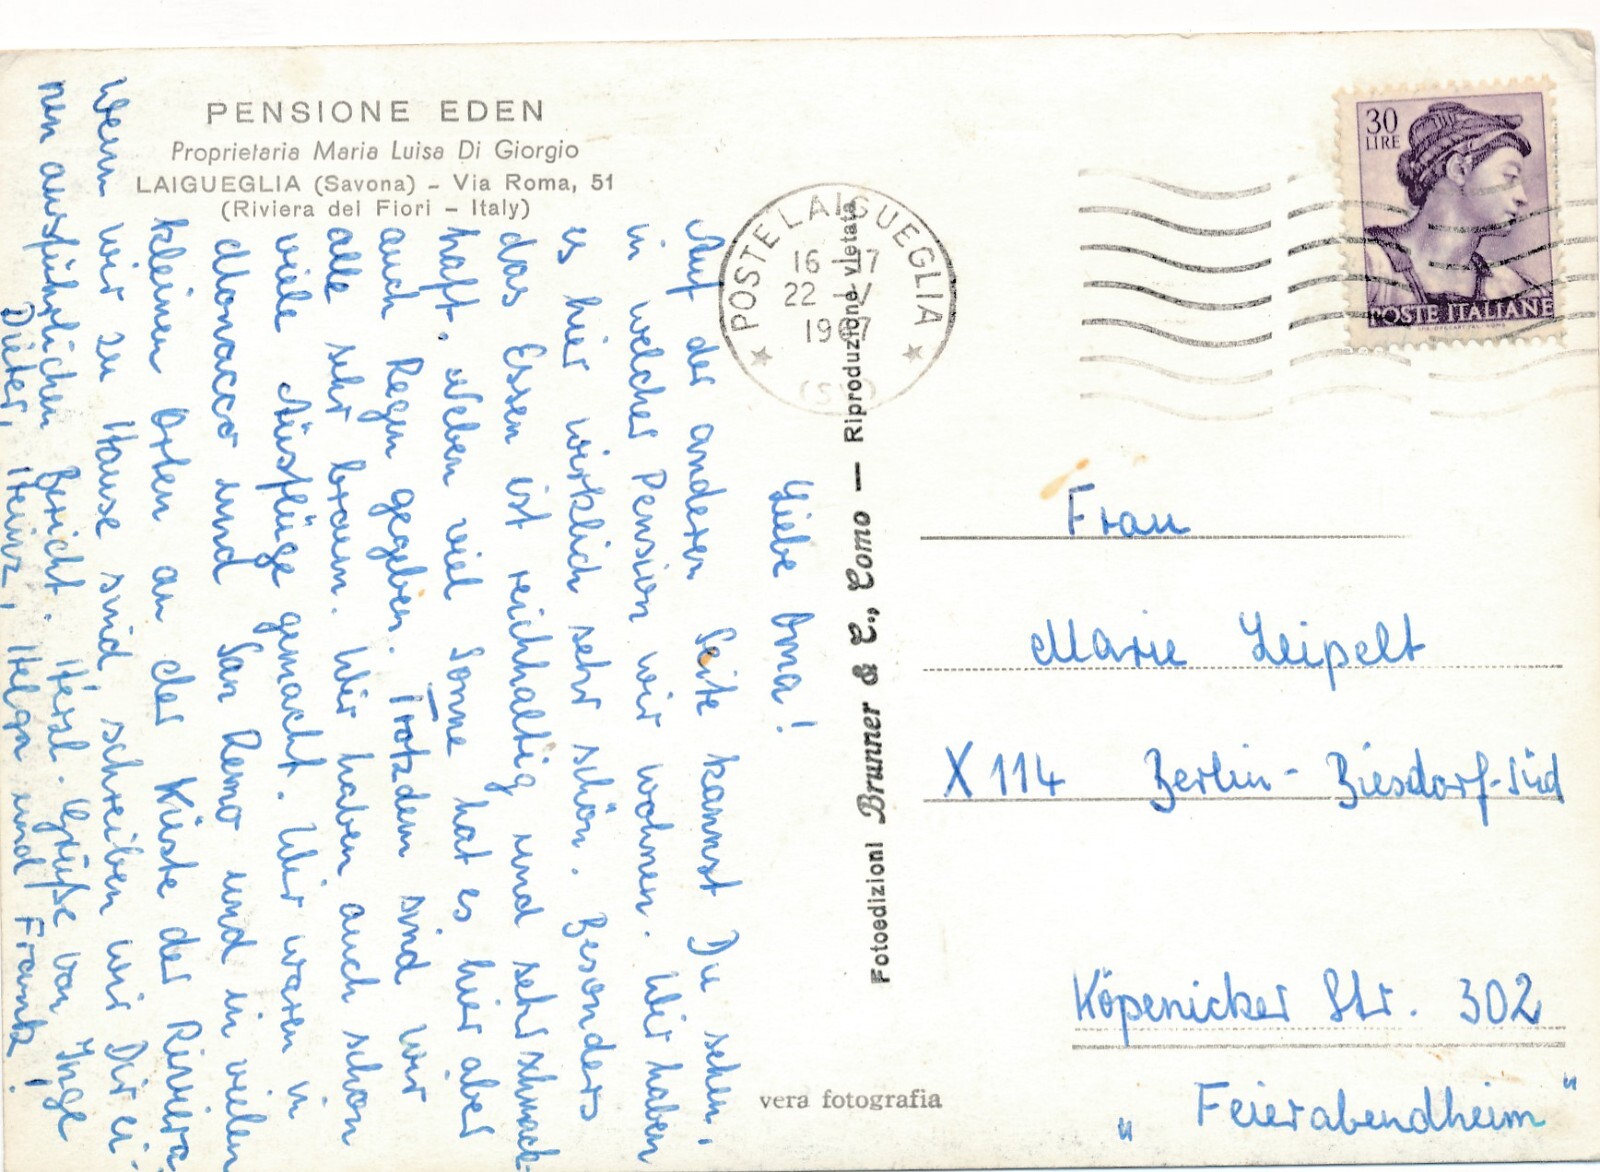 PENSIONE EDEN
Proprietaria Maria Luisa Di Giorgio
LAIGUEGLIA (Savona) - Via Roma, 51
(Riviera dei Fiori - Italy)
Liebe Oma!
Auf der anderen Seite kannst Du sehen,
in welcher Pension wir wohnen. Wir haben
es hier wirklich sehr schön. Besonders
das Essen ist reichhaltig und sehr schmack-
haft. Neben viel Sonne hat es hier aber
auch Regen gegeben. Trotzdem sind wir
alle sehr braun. Wir haben auch schon
viele Ausflüge gemacht. Wir waren in
Monacco und San Remo und in vielen
kleinen Orten an der Küste der Riviera.
Wenn wir zu Hause sind, schreiben wir Dir ei-
nen ausführlichen Bericht. Herzl. Grüße von Inge
Dieter, Heinz, Helga und Frank!
Fotoedizioni Brunner & C., Como — Riproduzione vietata
POSTE LAIGUEGLIA
16-17
22 V
1967
(SV)
30
LIRE
POSTE ITALIANE
Frau
Marie Leipelt
X 114 Berlin-Biesdorf-Süd
Köpenicker Str. 302
"Feierabendheim"
vera fotografia